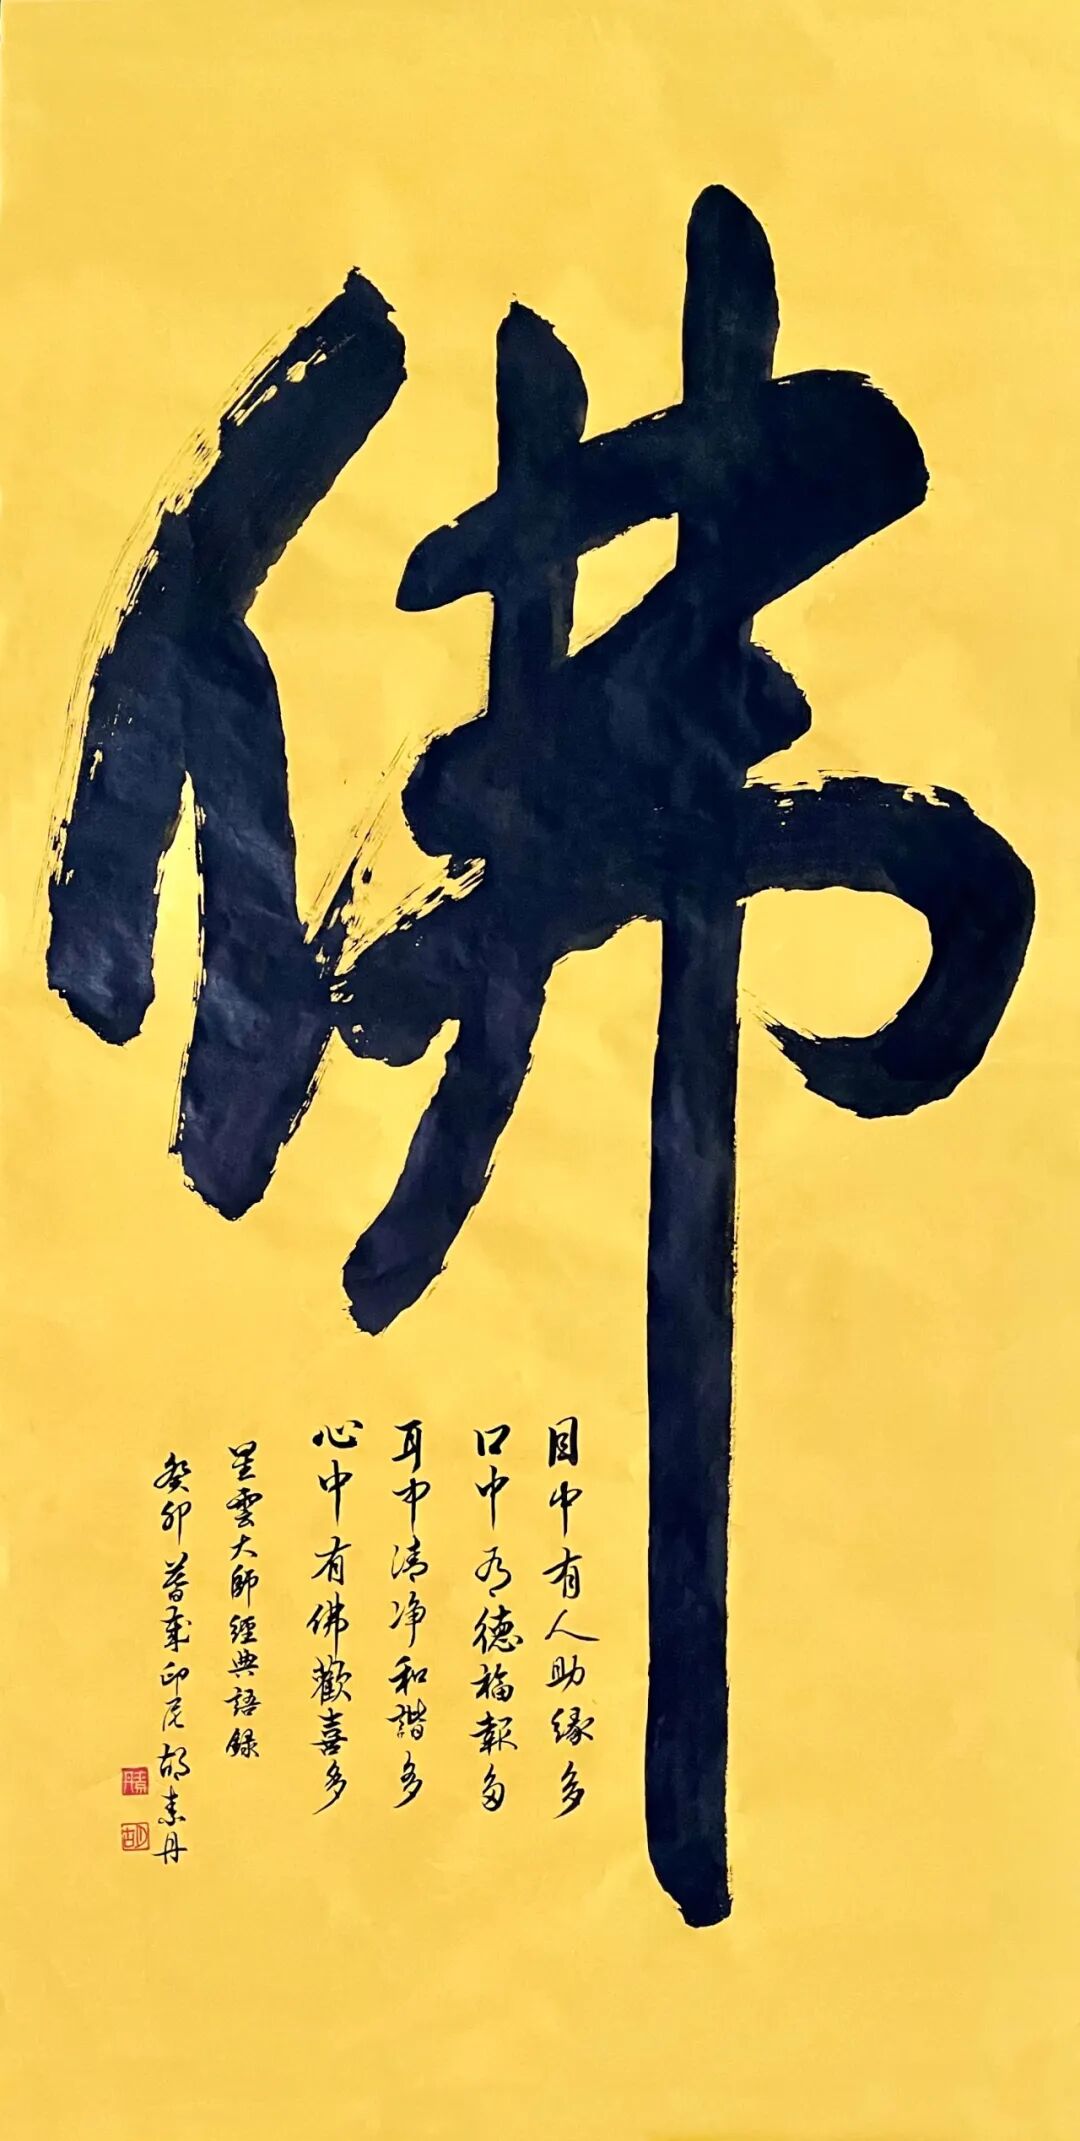 佛
目中有人助缘多
口中有德福報多
耳中清净和諧多
心中有佛歡喜多
星雲大師經典語錄
癸卯暮秋印尼胡素丹